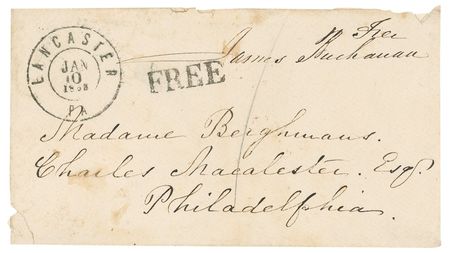 LANCASTER
JAN
10
PA
FREE
Free
James Buchanan
Madame Berghmans.
Charles Macalester. Esqr.
Philadelphia.